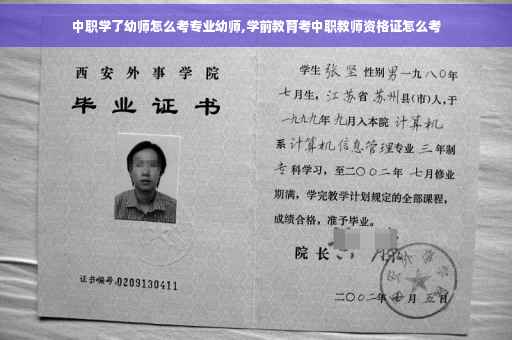 中职学了幼师怎么考专业幼师,学前教育考中职教师资格证怎么考
西安外事学院
毕业证书
证书编号:0209130411
学生 张坚 性别男 一九八〇年
七月生, 江苏省 苏州县(市)人,于
一九九九年 九月入本院 计算机
系 计算机信息管理专业 三 年制
专科学习,至二〇〇二年 七月修业
期满,学完教学计划规定的全部课程,
成绩合格,准予毕业。
院长
二〇〇二年 月 五日